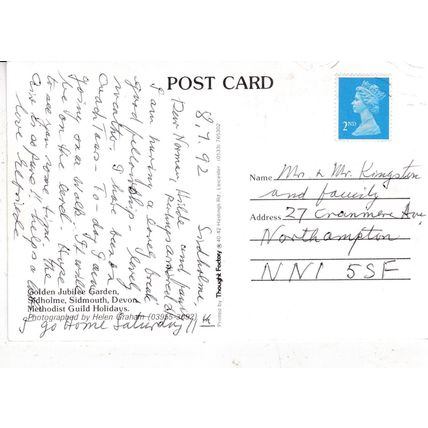 POST CARD
8.7.92 Sidholme,
Dear Norman, Hilda and family
I am having a lovely break
good fellowship - lovely
weather. I had been on
Coach Tours - To day I am
going on a Walk. It will
be on the card. Hope
to see you some time. The
love
go Home Saturday!!
2ND
Name Mr. & Mr. Kingston
and family
Address 27 Cranmere Av.
Northampton
NN1 5SF
Golden Jubilee Garden,
Sidholme, Sidmouth, Devon.
Methodist Guild Holidays.
Photographed by Helen Graham
Printed by Thought Factory 40-42 Hastings Rd Leicester (0533) 765302